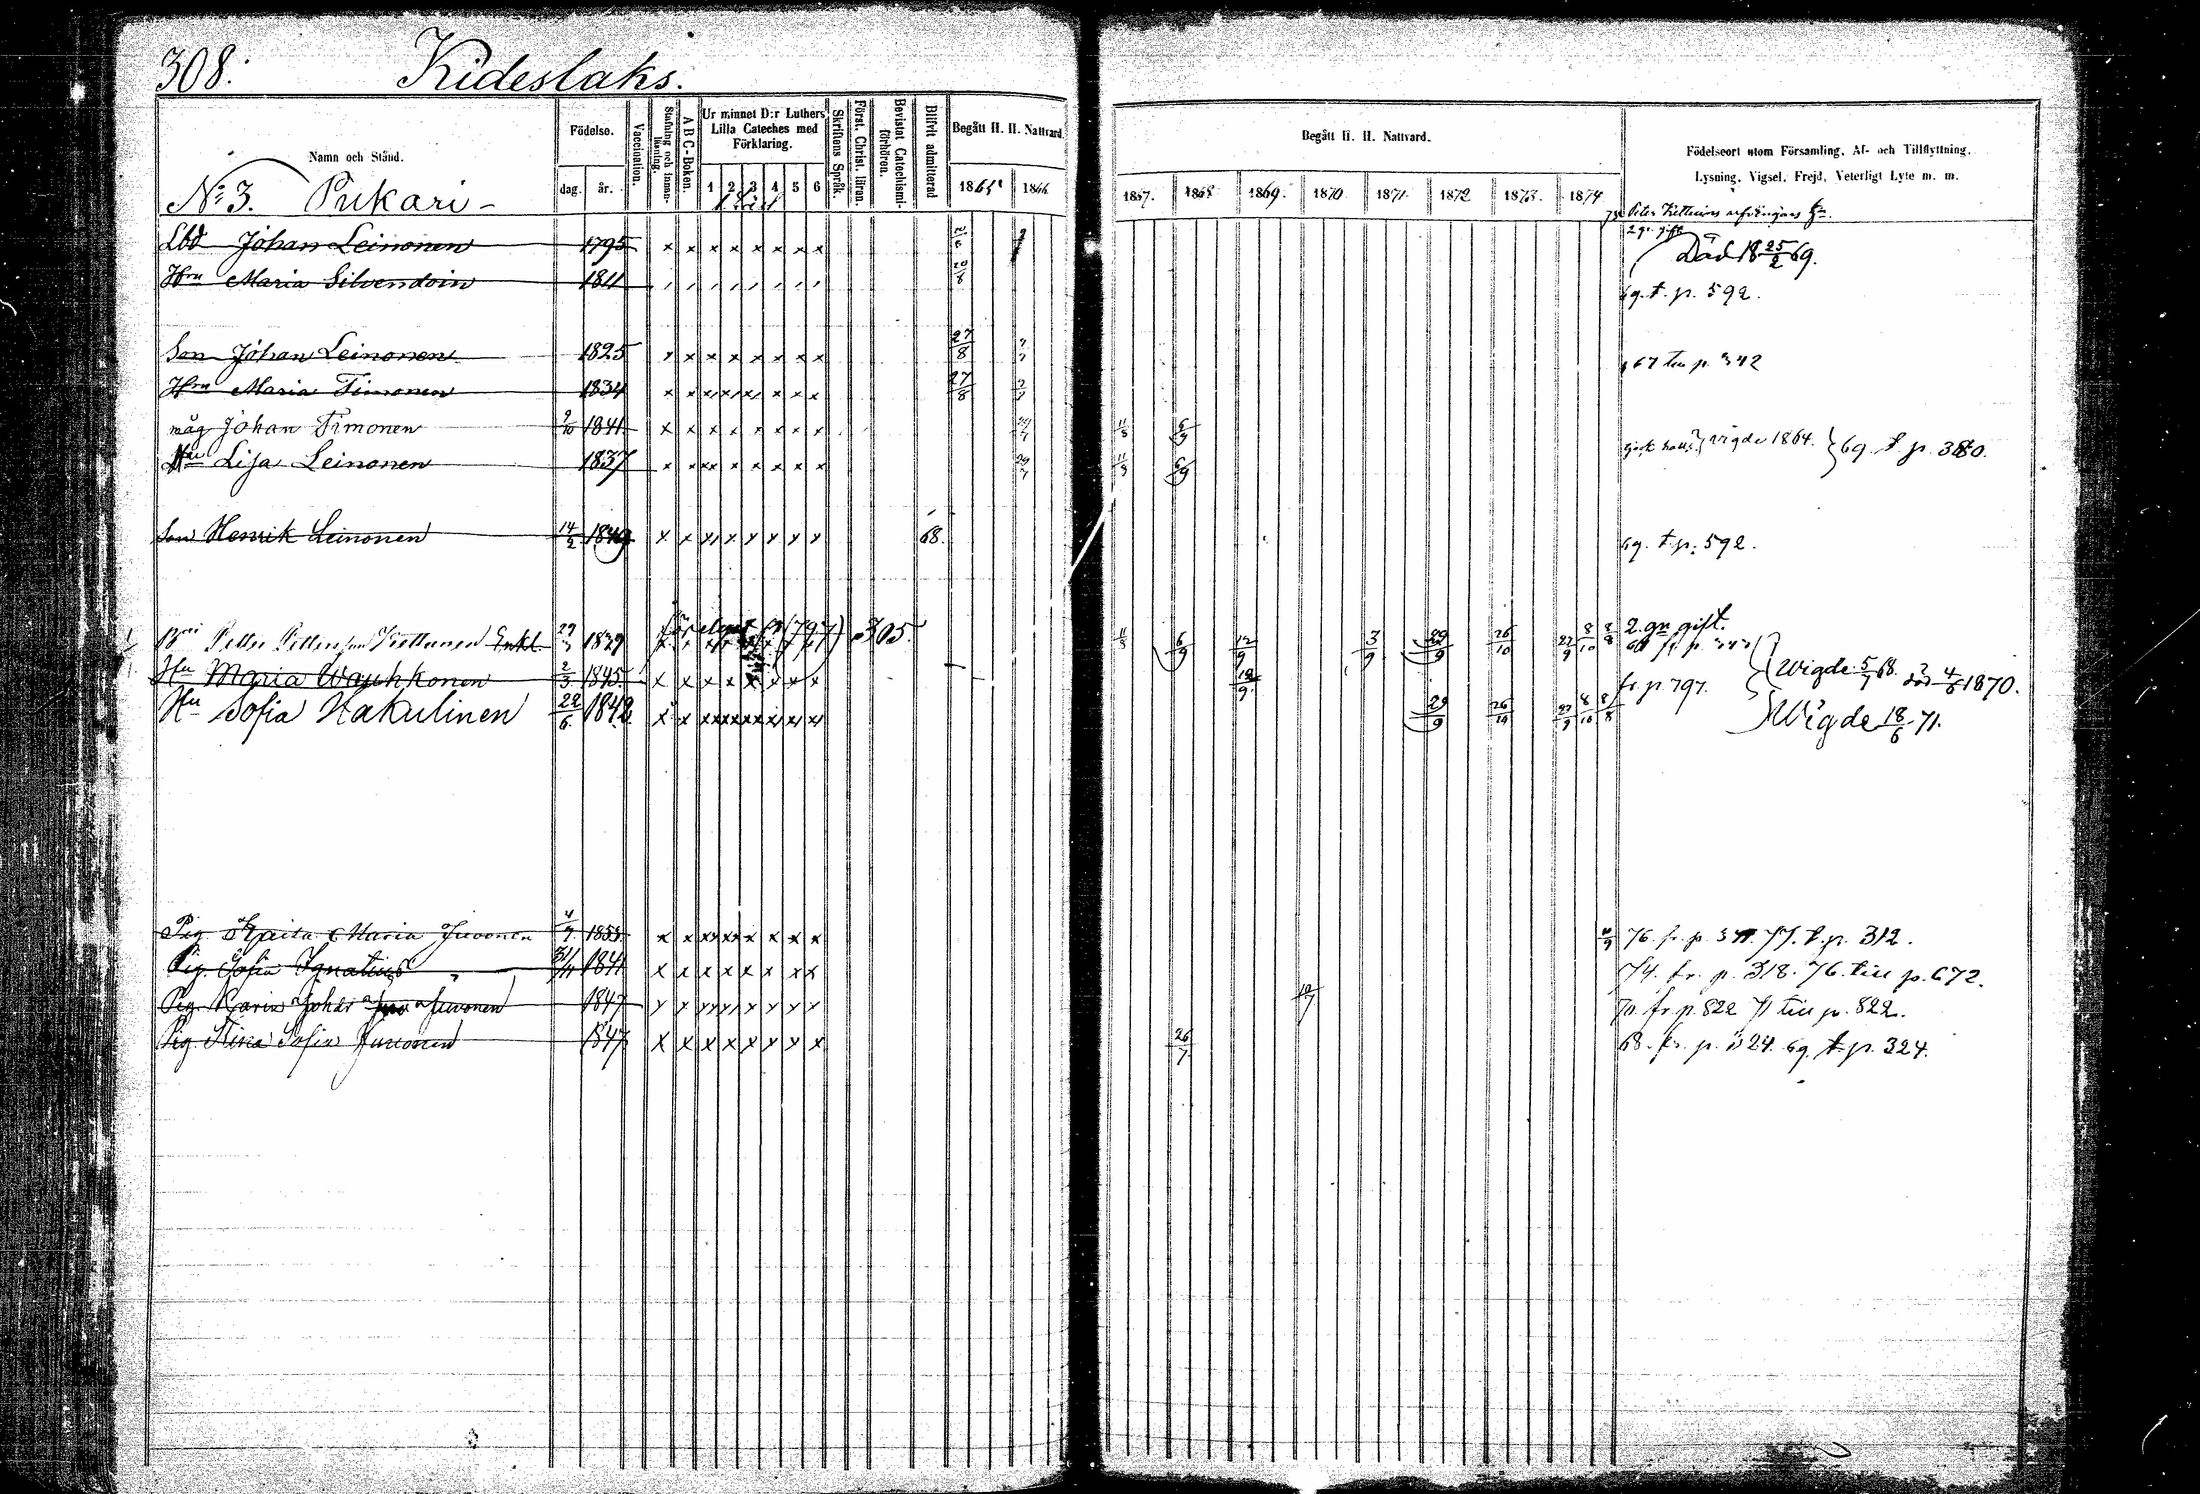 308. Kideslaks.
Namn och Stånd.
Födelse.
dag.
år.
Vaccination.
Stafning och innan-läsning.
A B C-Boken.
Ur minnet D:r Luthers Lilla Cateches med Förklaring.
1 2 3 4 5 6
Skriftens Språk.
Först. Christ. läran.
Bevistat Catechismi-förhören.
Blifvit admitterad
Begått H. H. Nattvard.
1865
1866
Begått H. H. Nattvard.
1867. 1868 1869. 1870. 1871. 1872 1873. 1874
Födelseort utom Församling, Af- och Tillflyttning,
Lysning, Vigsel, Frejd, Veterligt Lyte m. m.
No 3. Pukari -
Lbd Johan Leinonen 1795 x x x x x x x x 2 gr. gift Död 18 25/2 69.
Hru Maria Silvendoin 1811 20/8 69. t. p. 592.
Son Johan Leinonen 1825 x x x x x x x x 27/8 67 till p. 342
Hru Maria Timonen 1834 x x x x x x x x 27/8
måg Johan Timonen 9/10 1841 x x x x x x x x 11/8 6/9 vigde 1864. 69. t. p. 380.
Hru Lisa Leinonen 1837 x x x x x x x x 11/8 6/9
Son Henrik Leinonen 14/2 1849 x x x x x x x x 68. 69. t. p. 592.
Petter Pettersson Kettunen Enkl. 29/3 1839 (797) 305. 11/8 6/9 12/9 3/9 29/9 26/10 27/9 8/10 8/8 2. gn gift.
Hu Maria Wäyhkonen 2/3 1845 x x x x x x x x 12/9 fr. p. 797. Wigde 5/7 68. död 4/6 1870.
Hu Sofia Hakulinen 22/6 1842 x x x x x x x x 29/9 26/10 27/9 8/10 8/8 Wigde 18/6 71.
Pig Maria Juvonen 4/7 1855 x x x x x x x x 76. fr. p. 77. t. p. 312.
Pig Sofia Ignatius 1841 x x x x x x x x 74. fr. p. 318. 76. till p. 672.
Pig Karin Juvonen 1847 x x x x x x x x 70. fr. p. 822 71 till p. 822.
Pig Stina Sofia Juvonen 1847 x x x x x x x x 26/7 68. fr. p. 324. 69. t. p. 324.